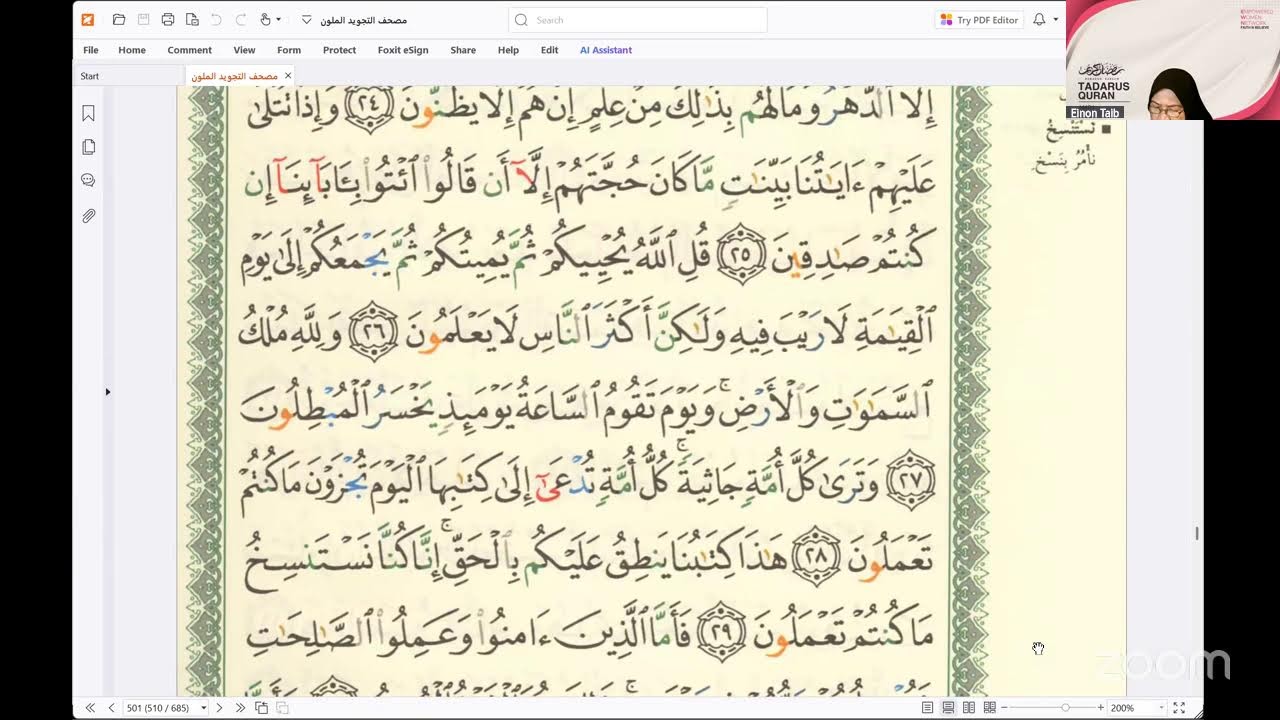 مصحف التجويد الملون
Search
Try PDF Editor
File Home Comment View Form Protect Foxit eSign Share Help Edit AI Assistant
Start
مصحف التجويد الملون
EMPOWERED
WOMEN
NETWORK
FAITH IN BELIEVE
رمضان كريم
TADARUS
QURAN
Elnon Taib
إِلَّا ٱلدَّهْرُ وَمَا لَهُم بِذَٰلِكَ مِنْ عِلْمٍ إِنْ هُمْ إِلَّا يَظُنُّونَ ٢٤ وَإِذَا تُتْلَىٰ
عَلَيْهِمْ ءَايَٰتُنَا بَيِّنَٰتٍ مَّا كَانَ حُجَّتَهُمْ إِلَّآ أَن قَالُوا۟ ٱئْتُوا۟ بِـَٔابَآئِنَآ إِن
كُنتُمْ صَٰدِقِينَ ٢٥ قُلِ ٱللَّهُ يُحْيِيكُمْ ثُمَّ يُمِيتُكُمْ ثُمَّ يَجْمَعُكُمْ إِلَىٰ يَوْمِ
ٱلْقِيَٰمَةِ لَا رَيْبَ فِيهِ وَلَٰكِنَّ أَكْثَرَ ٱلنَّاسِ لَا يَعْلَمُونَ ٢٦ وَلِلَّهِ مُلْكُ
ٱلسَّمَٰوَٰتِ وَٱلْأَرْضِ ۚ وَيَوْمَ تَقُومُ ٱلسَّاعَةُ يَوْمَئِذٍ يَخْسَرُ ٱلْمُبْطِلُونَ
٢٧ وَتَرَىٰ كُلَّ أُمَّةٍ جَاثِيَةً ۚ كُلُّ أُمَّةٍ تُدْعَىٰٓ إِلَىٰ كِتَٰبِهَا ٱلْيَوْمَ تُجْزَوْنَ مَا كُنتُمْ
تَعْمَلُونَ ٢٨ هَٰذَا كِتَٰبُنَا يَنطِقُ عَلَيْكُم بِٱلْحَقِّ ۚ إِنَّا كُنَّا نَسْتَنسِخُ
مَا كُنتُمْ تَعْمَلُونَ ٢٩ فَأَمَّا ٱلَّذِينَ ءَامَنُوا۟ وَعَمِلُوا۟ ٱلصَّٰلِحَٰتِ
نَسْتَنْسِخُ
نأمُرُ بِنَسْخِ
zoom
501 (510 / 685)
200%